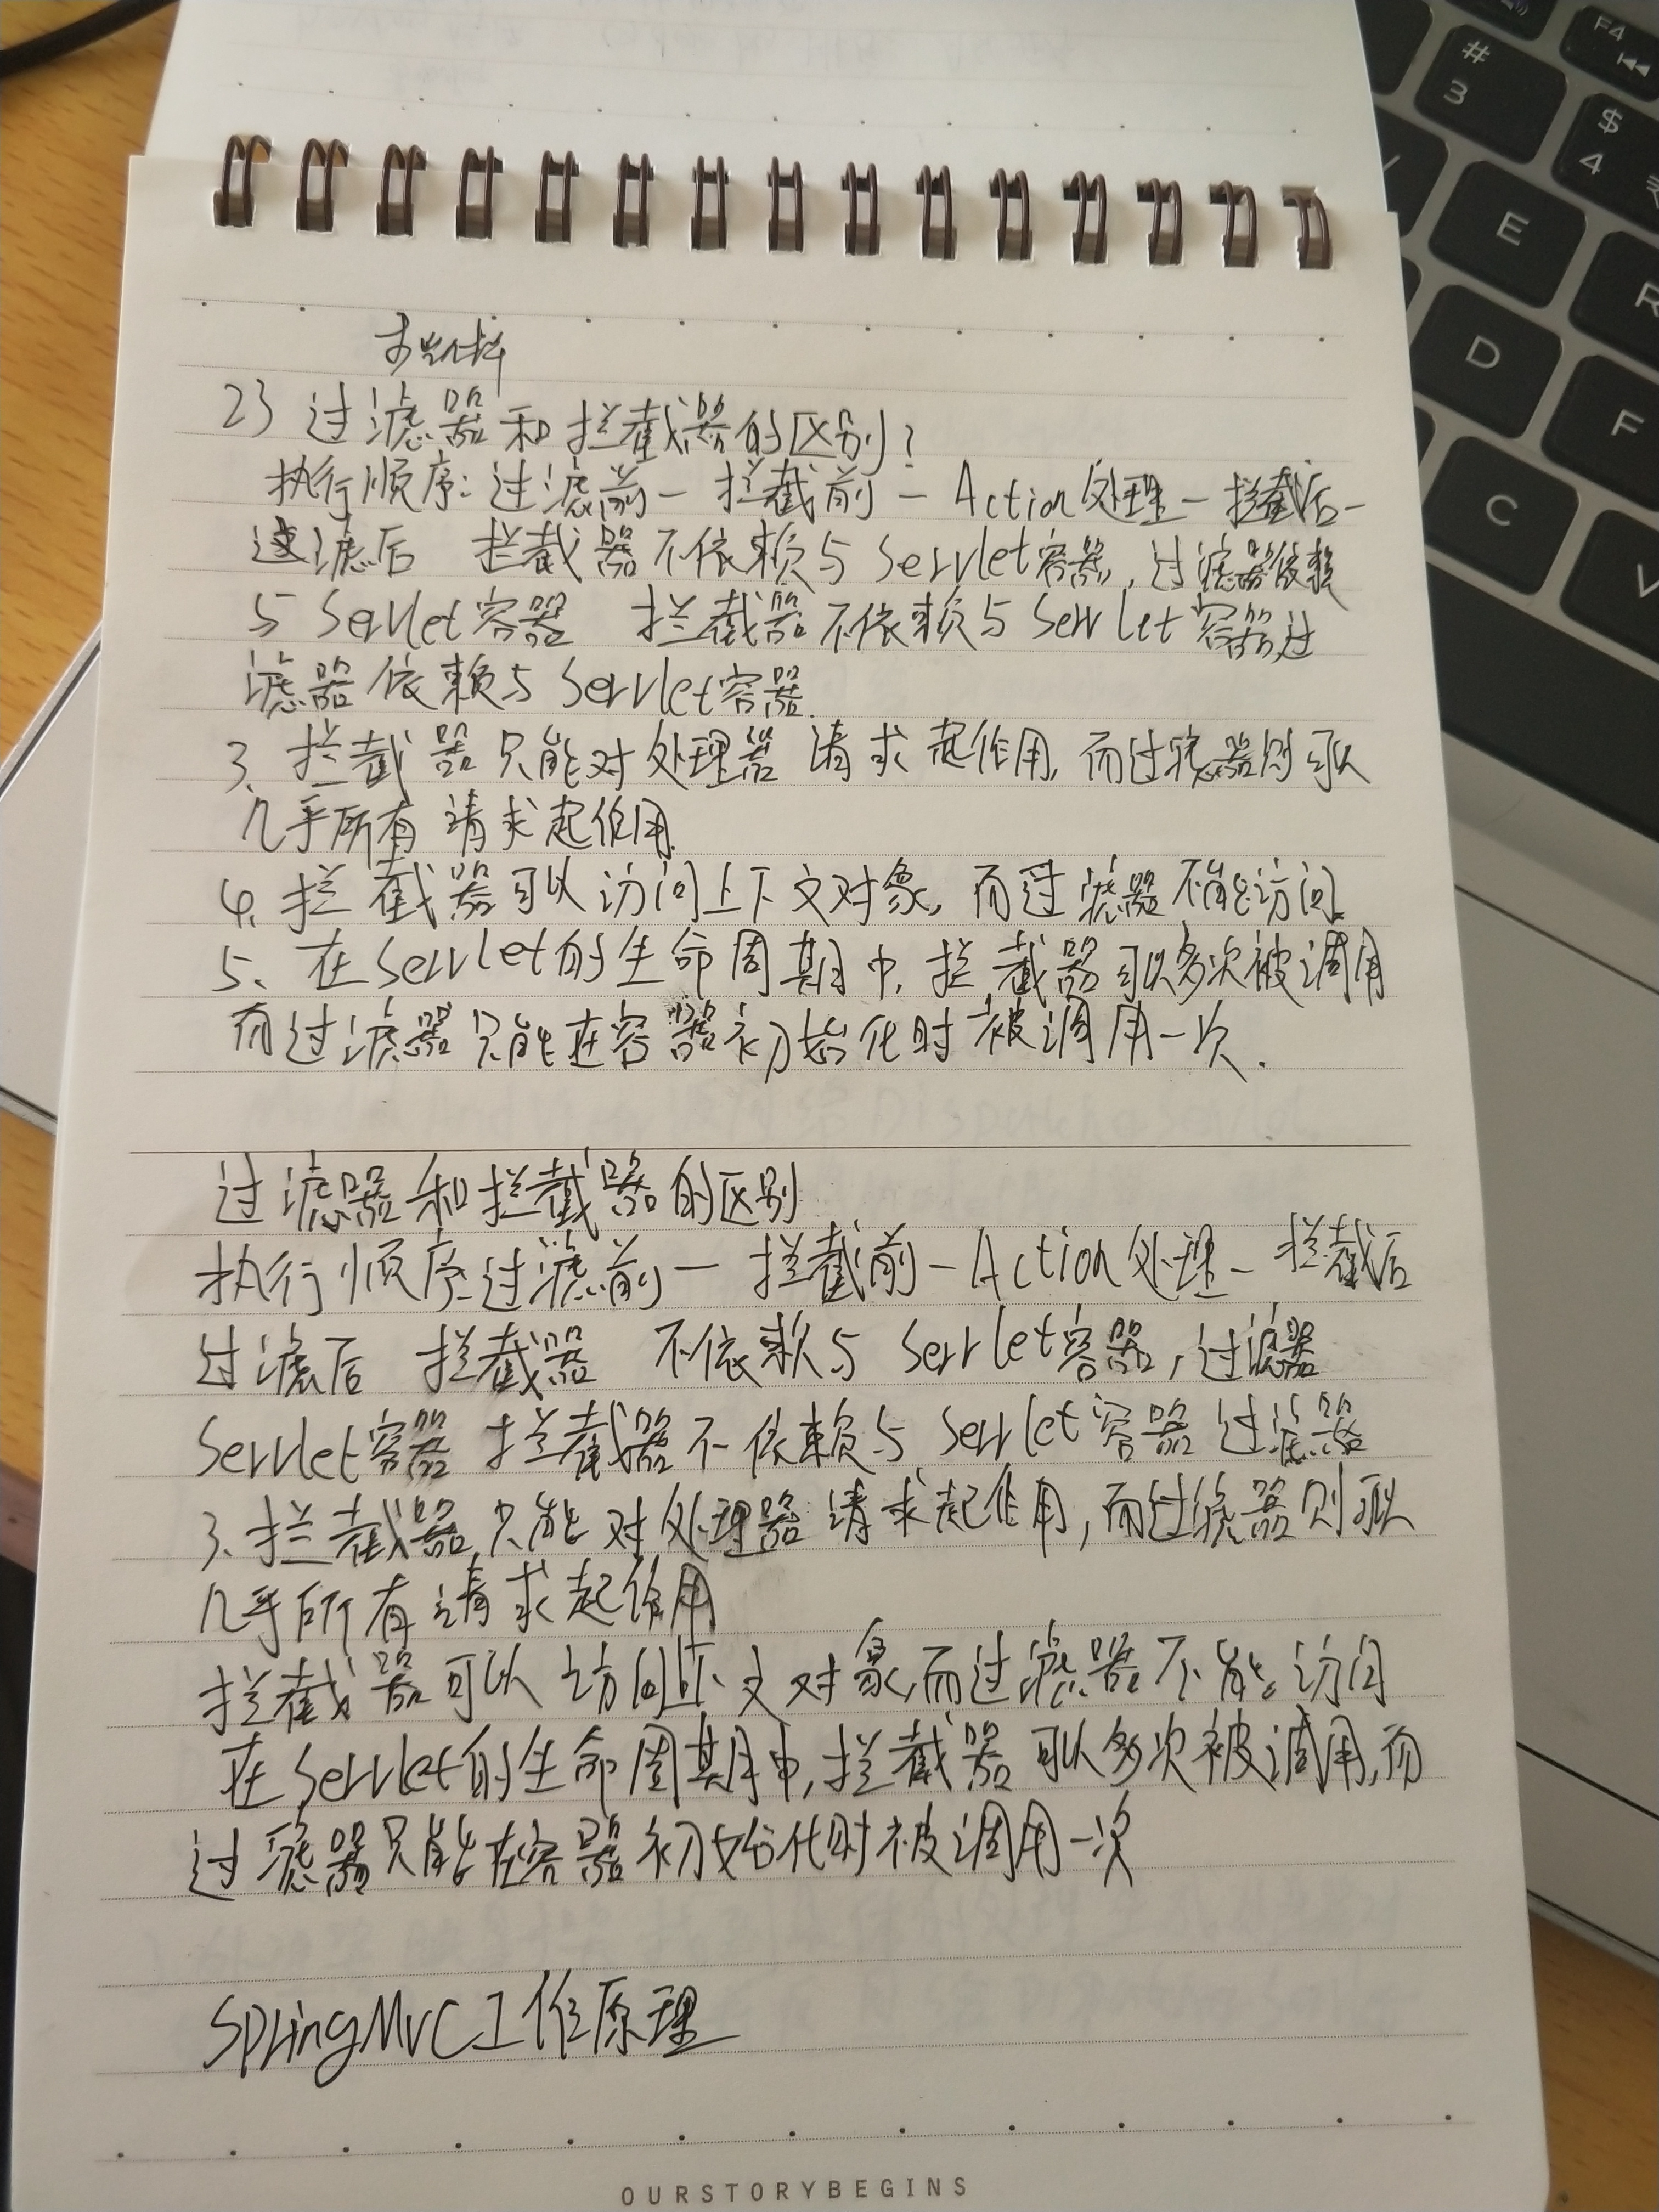 23 过滤器和拦截器的区别?
执行顺序:过滤前一拦截前一Action处理一拦截后一
过滤后 拦截器不依赖与Servlet容器,过滤器依赖
与Servlet容器 拦截器不依赖与Servlet容器,过
滤器依赖与Servlet容器.
3、拦截器只能对处理器请求起作用,而过滤器则可以
几乎所有请求起作用.
4、拦截器可以访问上下文对象,而过滤器不能访问.
5、在Servlet的生命周期中,拦截器可以多次被调用
而过滤器只能在容器初始化时被调用一次.
过滤器和拦截器的区别
执行顺序:过滤前一拦截前一Action处理一拦截后
过滤后 拦截器 不依赖与Servlet容器,过滤器
Servlet容器 拦截器不依赖与Servlet容器 过滤器
3、拦截器只能对处理器请求起作用,而过滤器则可以
几乎所有请求起作用
拦截器可以访问上下文对象,而过滤器不能访问
在Servlet的生命周期中,拦截器可以多次被调用,而
过滤器只能在容器初始化时被调用一次
SpringMVC工作原理
OURSTORYBEGINS
# 3
$ 4
F4
E
R
D
F
C
V